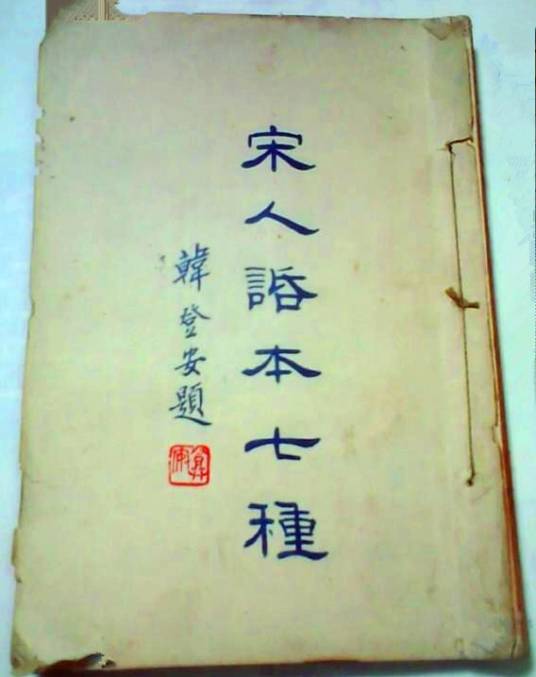 宋人話本七種
韓登安題